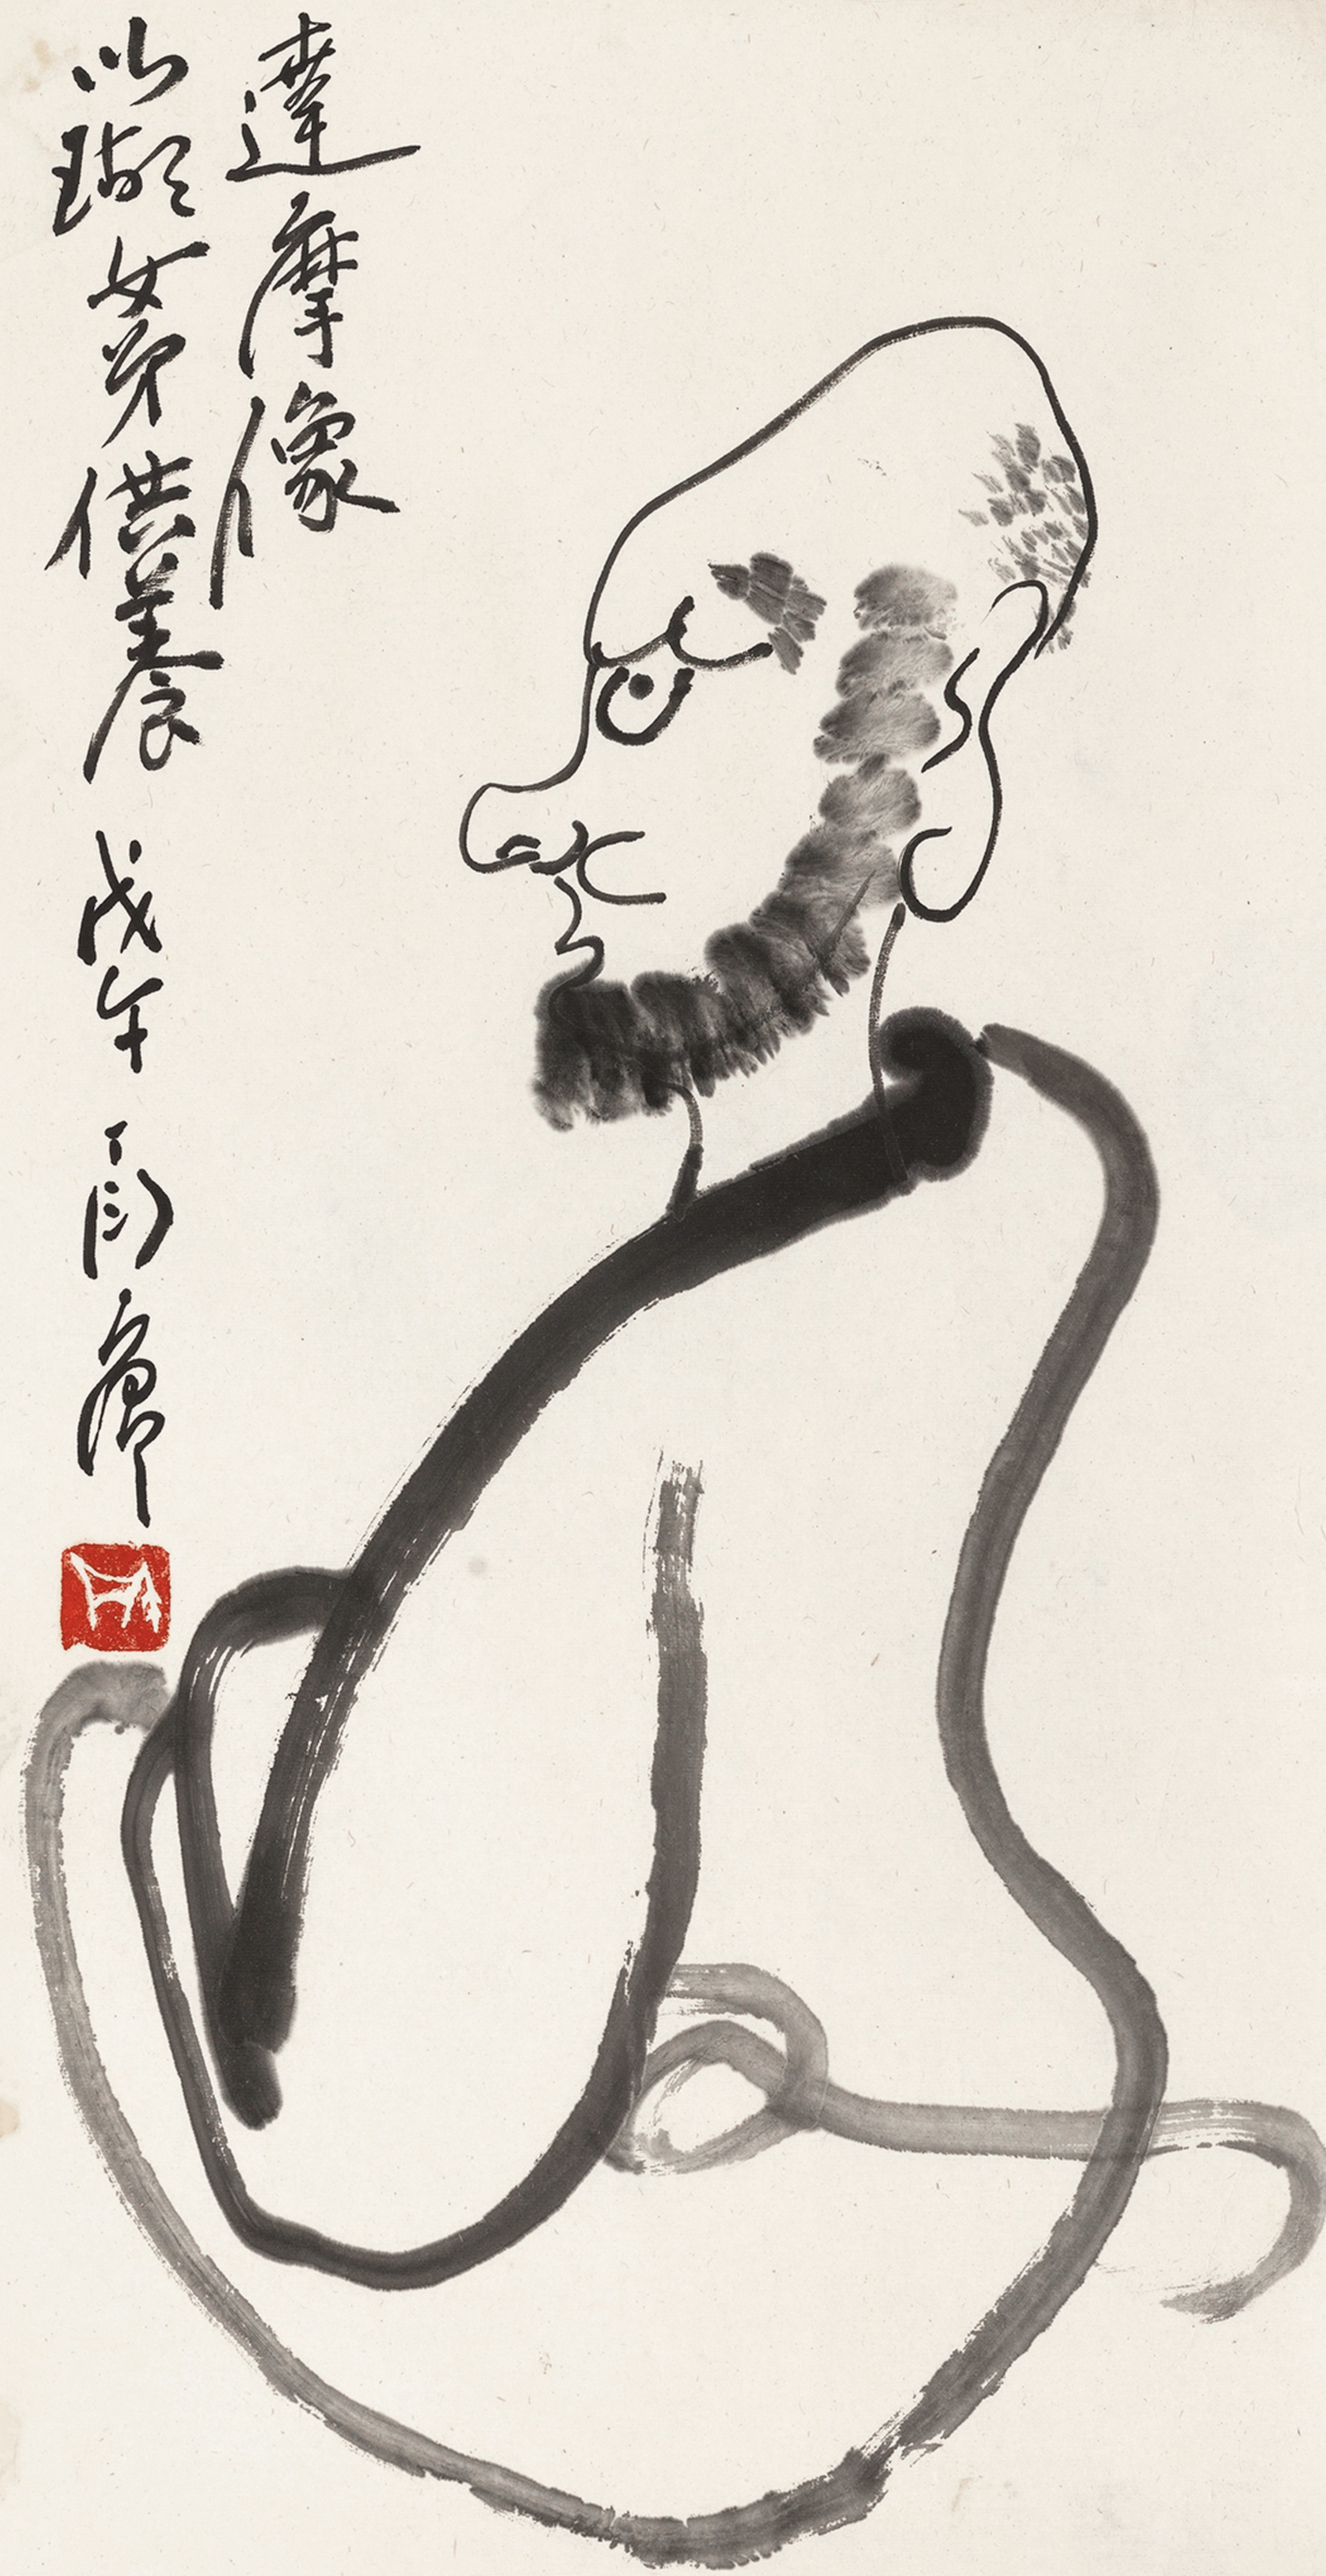 達摩像
以瑚女弟供養 戊午 丁衍庸